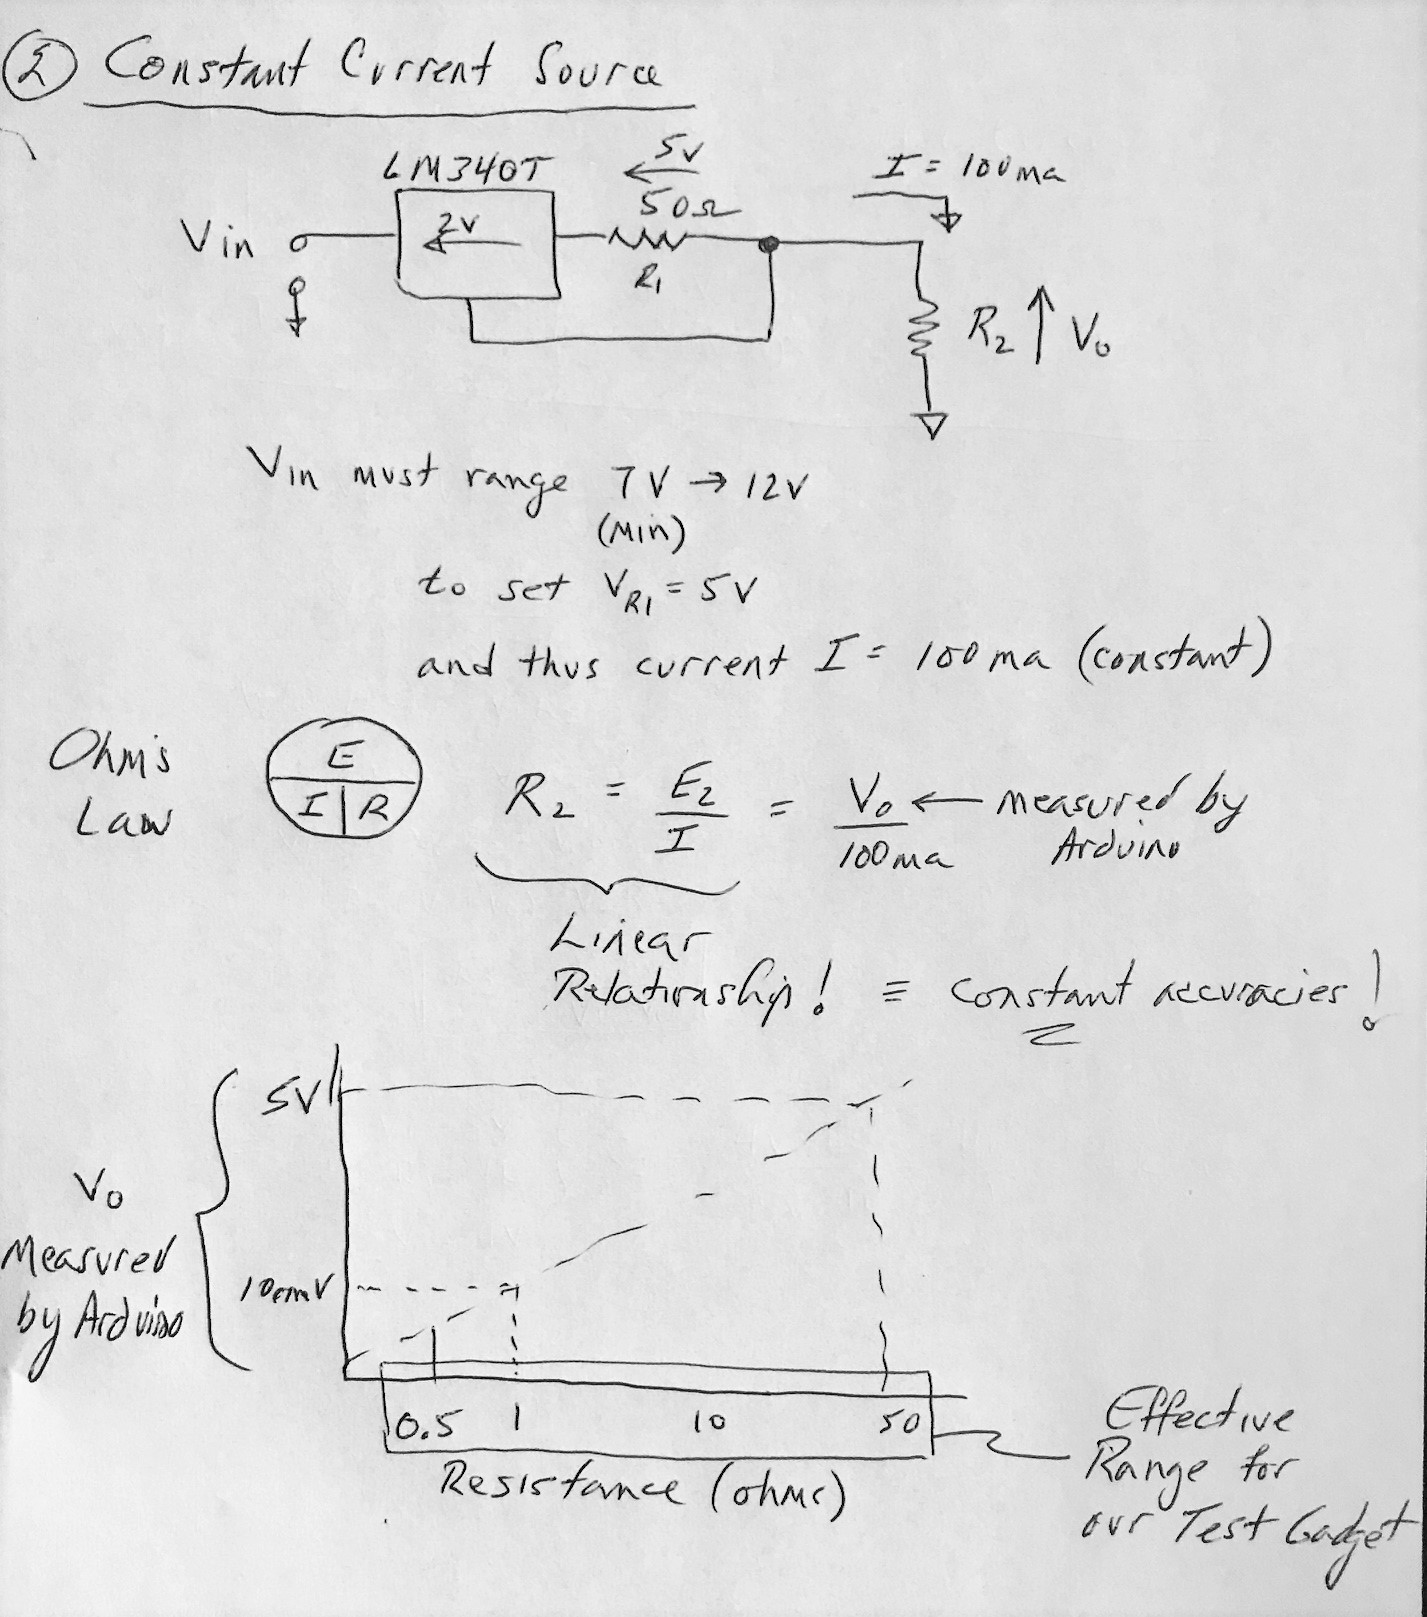 ② Constant Current Source
LM340T
5V
I = 100ma
50Ω
2V
Vin
R1
R2
Vo
Vin must range 7V → 12V
(Min)
to set VR1 = 5V
and thus current I = 100ma (constant)
Ohm's
Law
E
I | R
R2 = E2/I = Vo/100ma ← measured by
Arduino
Linear
Relationship! ≡ constant accuracies!
5V
Vo
Measured
by Arduino
100mV
0.5 1 10 50
Resistance (ohms)
Effective
Range for
our Test Gadget